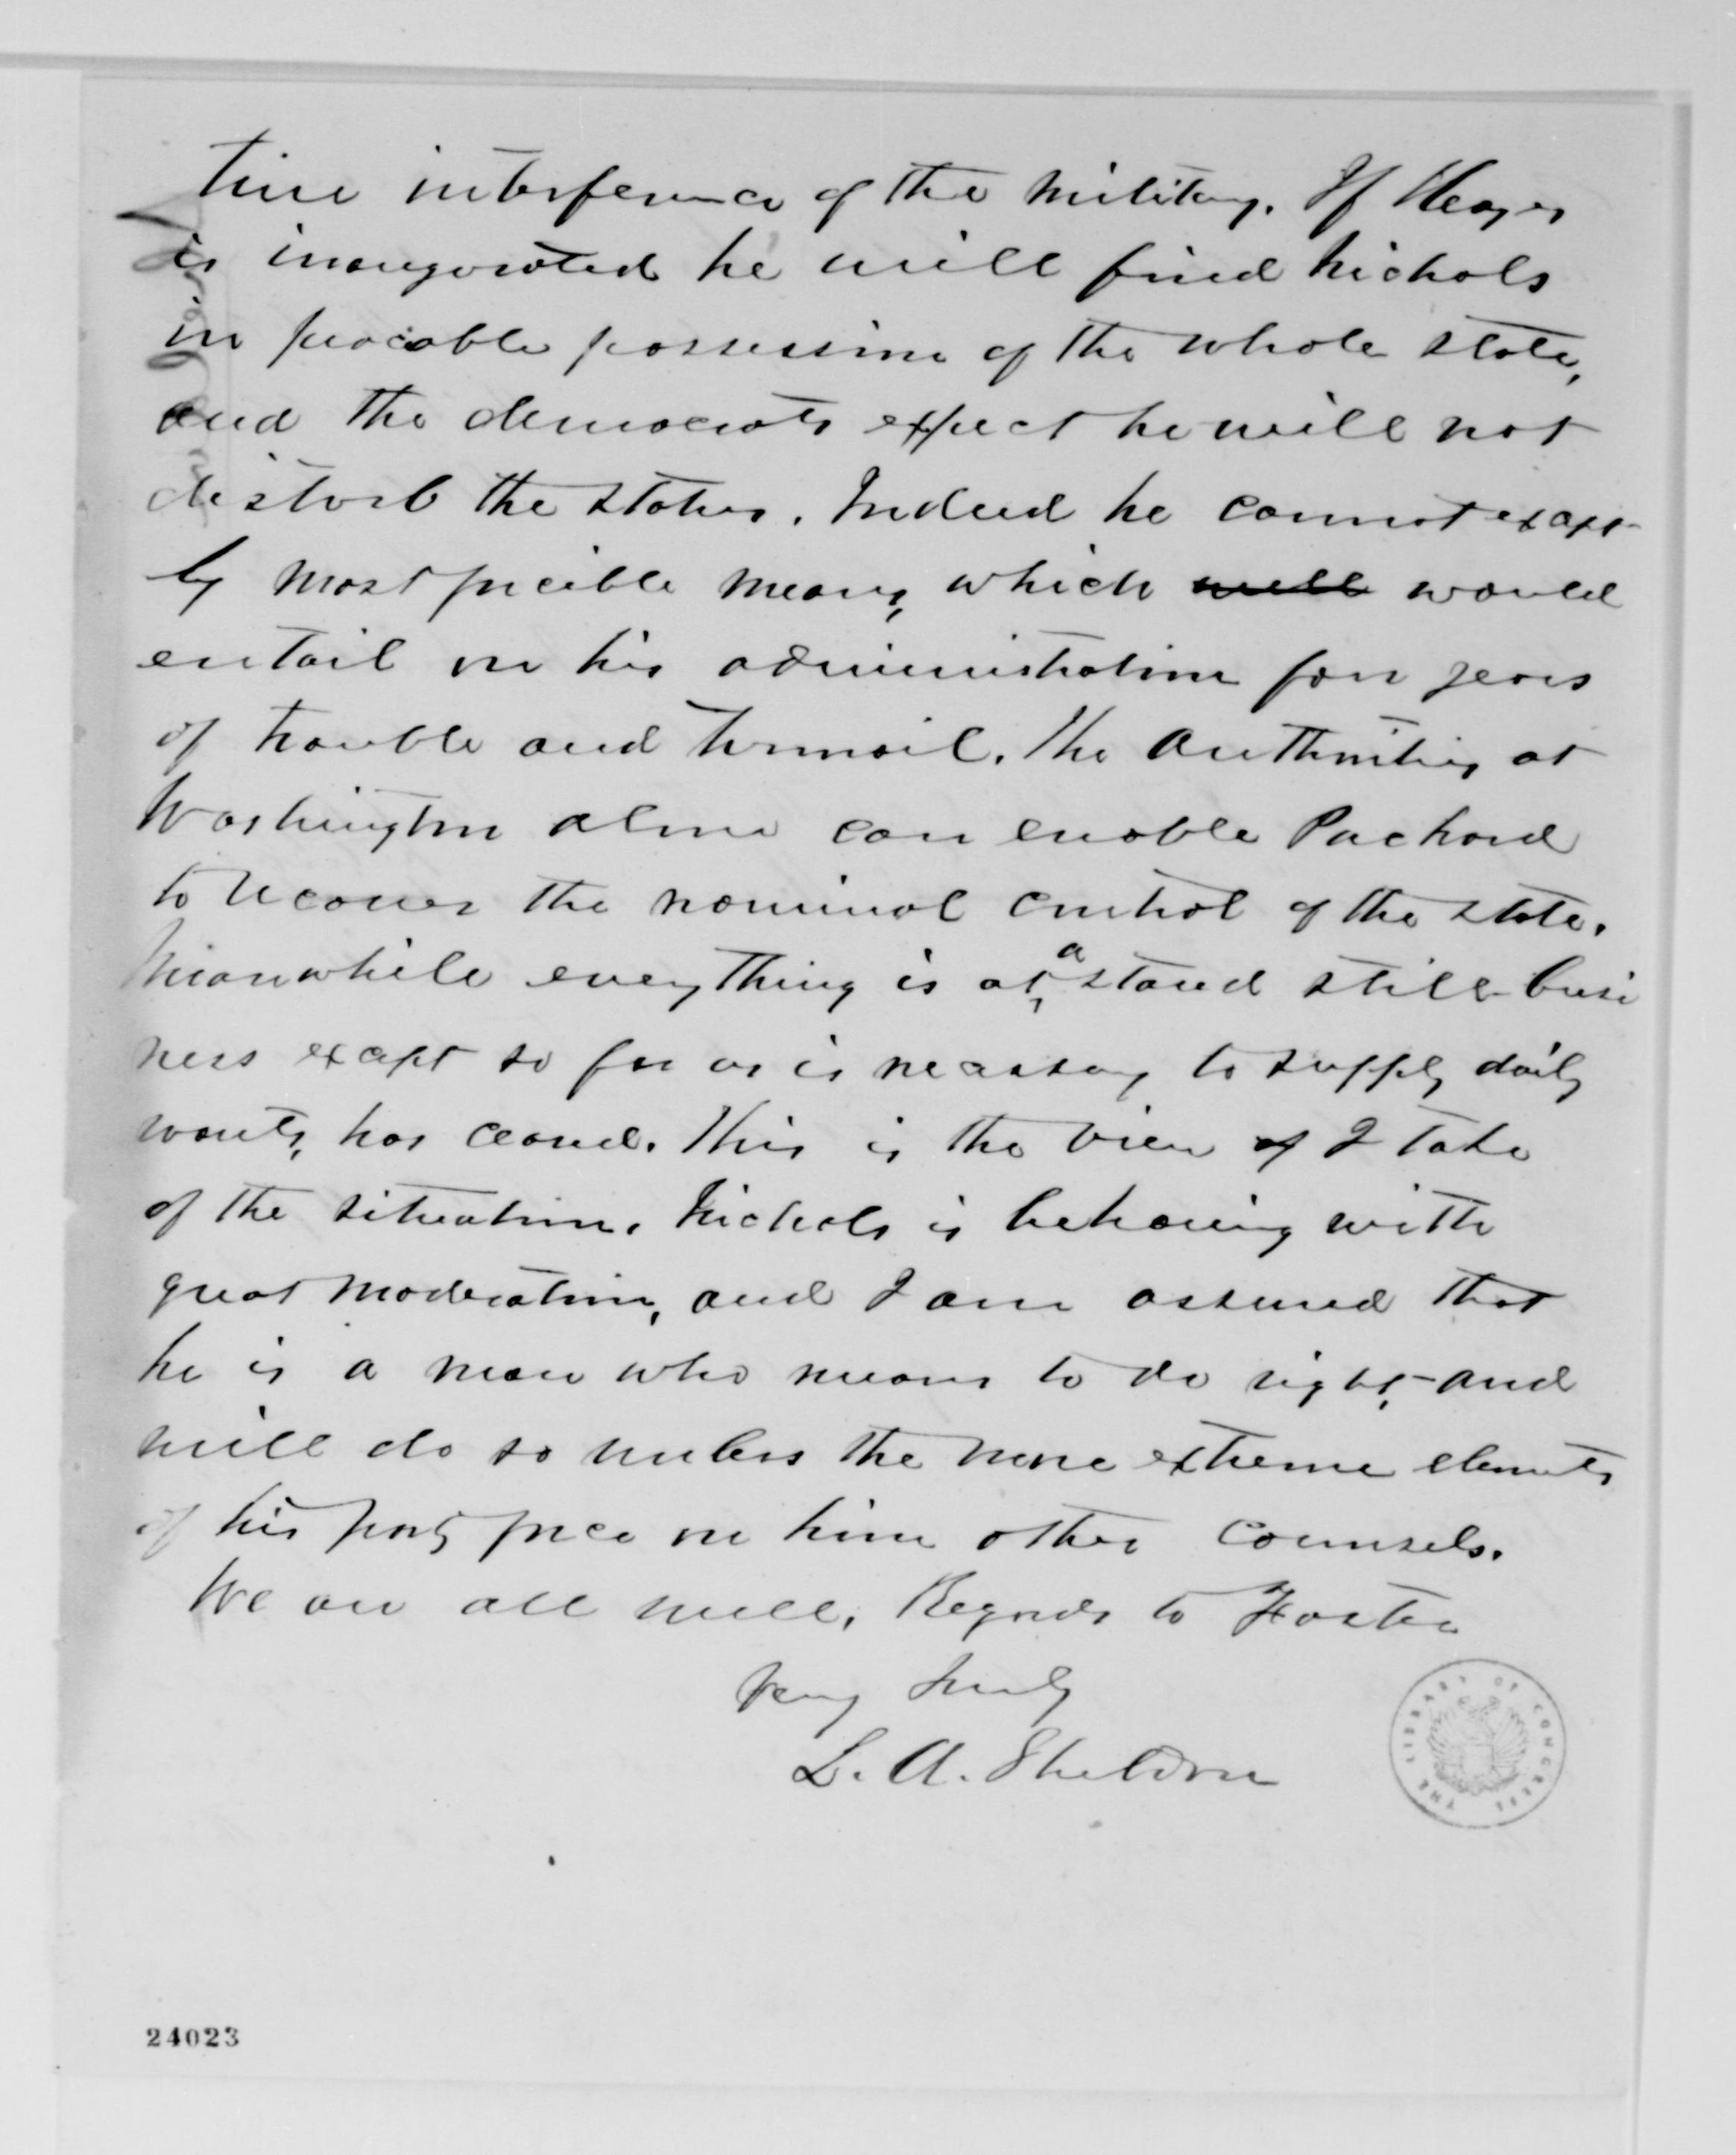 tive interference of the military. If Heayes
is inaugurated he will find Nichols
in peacable possession of the whole state,
and the democrats expect he will not
disturb the status. Indeed he cannot except
by most forcible means, which will would
entail on his administration four years
of trouble and turmoil. The authorities at
Washington alone can enable Packard
to recover the nominal control of the state.
Meanwhile everything is at a stand still - busi
ness except so far as is necessary to supply daily
wants, has ceased. This is the view of I take
of the situation. Nichols is behaving with
great moderation, and I am assured that
he is a man who means to do right, and
will do so unless the more extreme elements
of his party force on him other counsels.
We are all well. Regards to Foster
Very truly
L. A. Sheldon
THE LIBRARY OF CONGRESS
24023